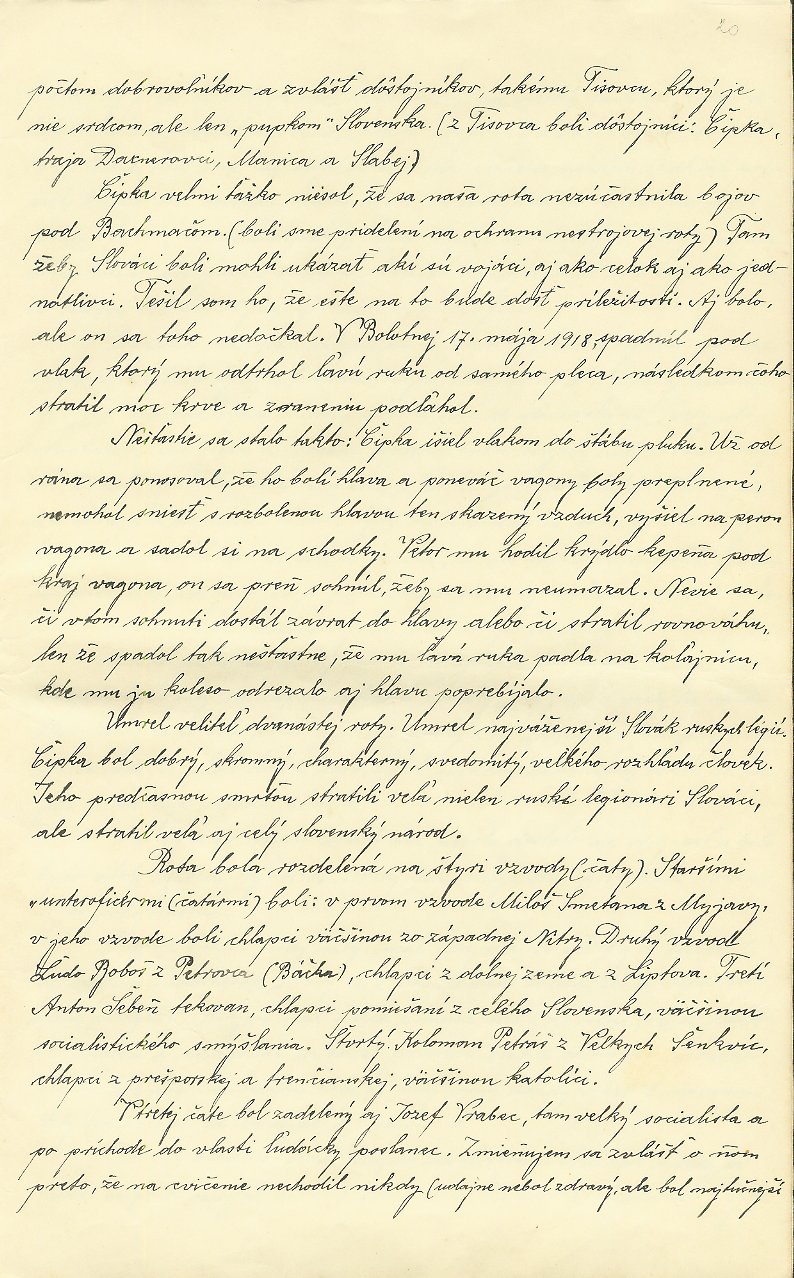 20
počtom dobrovoľníkov a zvlášť dôstojníkov, takému Tisovcu, ktorý je
nie srdcom, ale len „pupkom" Slovenska. (z Tisovca boli dôstojníci: Čipka,
traja Dacnerovci, Manica a Slabej)
Čipka veľmi ťažko niesol, že sa naša rota nezúčastnila bojov
pod Bachmačom. (boli sme pridelení na ochranu nestrojovej roty) Tam
žeby Slováci boli mohli ukázať akí sú vojáci, aj ako celok aj ako jed-
notlivci. Tešil som ho, že ešte na to bude dosť príležitosti. Aj bolo,
ale on sa toho nedočkal. V Bolotnej 17. mája 1918 spadnúl pod
vlak, ktorý mu odtrhol ľavú ruku od samého pleca, následkom čoho
stratil moc krve a zraneniu podľahol.
Nešťastie sa stalo takto: Čipka išiel vlakom do štábu pluku. Už od
rána sa ponosoval, že ho bolí hlava a poneváč vagony boly preplnené,
nemohol sniesť s rozbolenou hlavou ten skazený vzduch, vyšiel na peron
vagona a sadol si na schodky. Vetor mu hodil krýdlo kepeňa pod
kraj vagona, on sa preň sohnúl, žeby sa mu neumazal. Nevie sa,
či v tom sohnutí dostál závrat do hlavy alebo či stratil rovnováhu,
len že spadol tak nešťastne, že mu ľavá ruka padla na koľajnicu,
kde mu ju koleso odrezalo aj hlavu poprebíjalo.
Umrel veliteľ dvanástej roty. Umrel najváženejší Slovák ruských légií.
Čipka bol dobrý, skromný, charakterný, svedomitý, veľkého rozhľadu človek.
Jeho predčasnou smrťou stratili veľa nielen ruskí legionári Slováci,
ale stratil veľa aj celý slovenský národ.
Rota bola rozdelená na štyri vzvody (čaty). Staršími
„unteroficérmi (čatármi) boli: v prvom vzvode Miloš Smetana z Myjavy,
v jeho vzvode boli chlapci väčšinou zo západnej Nitry. Druhý vzvod
Ľudo Boboš z Petrovca (Báčka), chlapci z dolnej zeme a z Liptova. Tretí
Anton Šebeň tekovan, chlapci pomiešaní z celého Slovenska, väčšinou
socialistického smýšľania. Štvrtý: Koloman Petráš z Veľkych Šenkvíc,
chlapci z prešporskej a trenčianskej, väčšinou katolíci.
V tretej čate bol zadelený aj Jozef Vrabec, tam veľký socialista a
po príchode do vlasti ľudácky poslanec. Zmieňujem sa zvlášť o ňom
preto, že na cvičenie nechodil nikdy (udajne nebol zdravý, ale bol najtučnejší